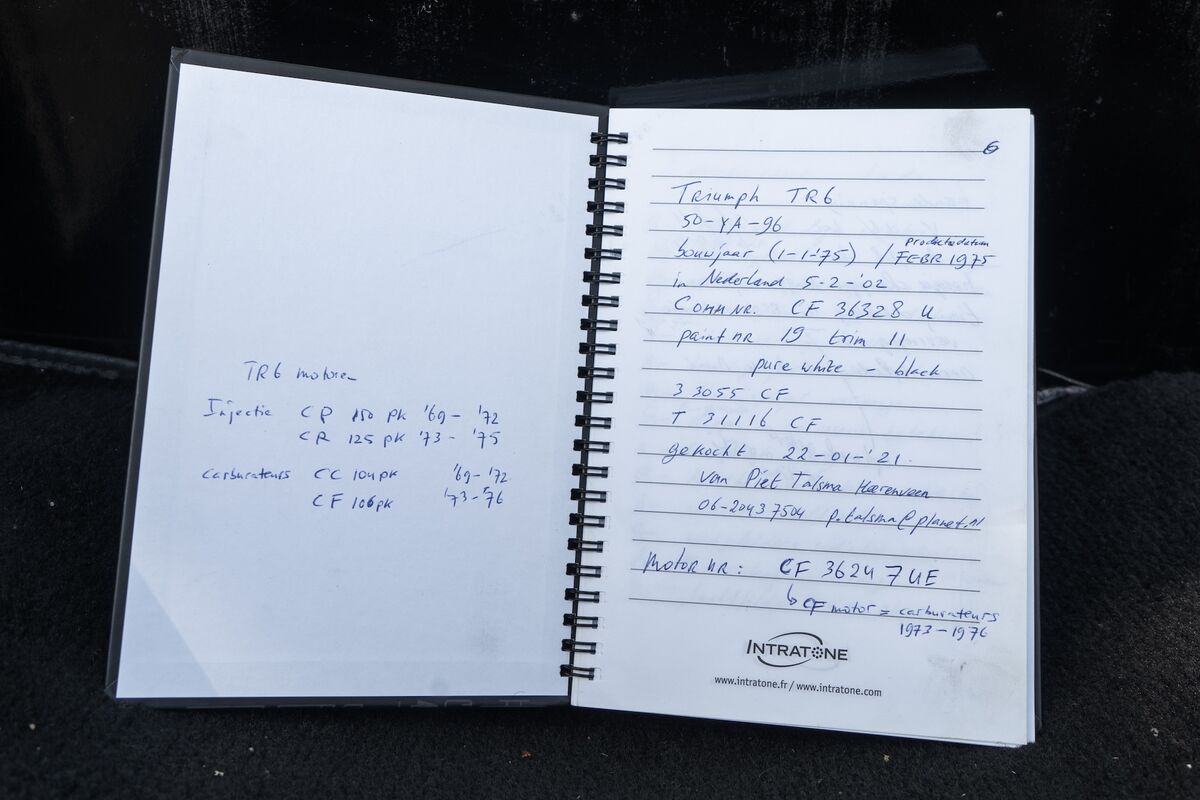 TR6 motoren
Injectie CP 150 pk '69 - '72
CR 125 pk '73 - '75
carburateurs CC 104pk '69 - '72
CF 106pk '73 - '76
6
Triumph TR6
50-YA-96
productiedatum
bouwjaar (1-1-'75) / FEBR 1975
in Nederland 5-2-'02
COMM NR. CF 36328 U
paint nr 19 trim 11
pure white - black
33055 CF
T 31116 CF
gekocht 22-01-'21.
van Piet Talsma Heerenveen
06-20437504 p.talsma@planet.nl
Motor nr: CF 36247 UE
↳ CF motor = carburateurs
1973-1976
INTRATONE
www.intratone.fr / www.intratone.com